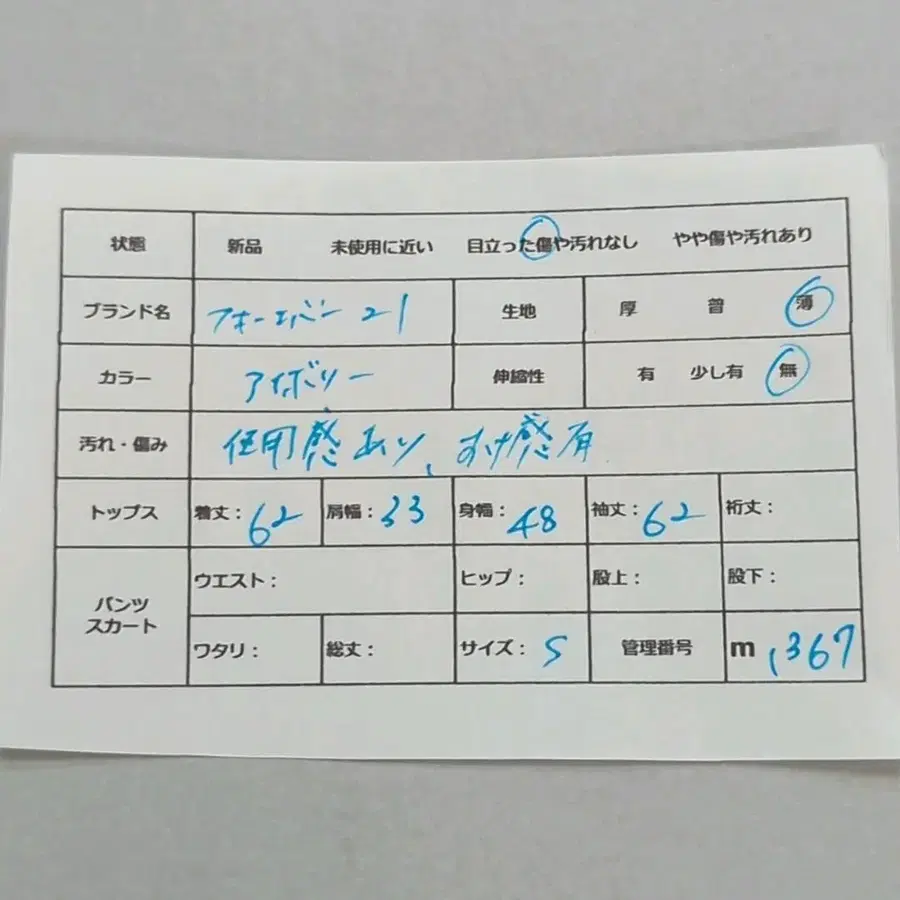 状態 新品 未使用に近い 目立った傷や汚れなし やや傷や汚れあり
ブランド名 フォーエバー 21 生地 厚 普 薄
カラー アイボリー 伸縮性 有 少し有 無
汚れ・傷み 使用感あり、すけ感有
トップス 着丈：62 肩幅：33 身幅：48 袖丈：62 裄丈：
パンツ スカート ウエスト： ヒップ： 股上： 股下：
ワタリ： 総丈： サイズ：S 管理番号 m 1367